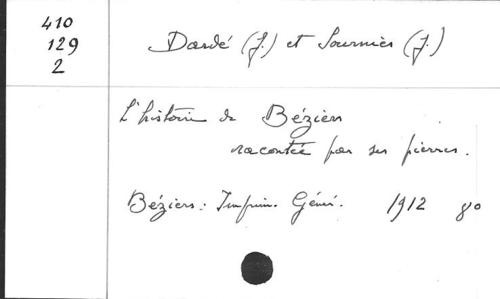 410
129
2
Dardé (J.) et Sournies (J.)
L'histoire de Béziers
racontée par ses pierres.
Béziers : Imprim. Géné. 1912 8o